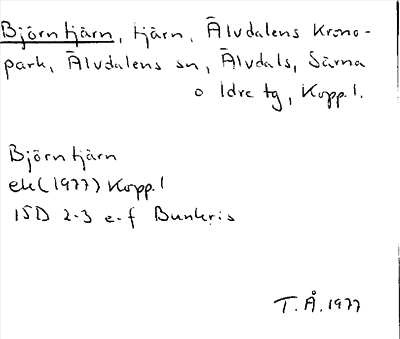 Björntjärn, tjärn, Älvdalens Krono-
park, Älvdalens sn, Älvdals, Särna
o Idre tg, Kopp.l.
Björntjärn
ek(1977) Kopp.l
15D 2-3 e-f Bunkris
T.Å.1977